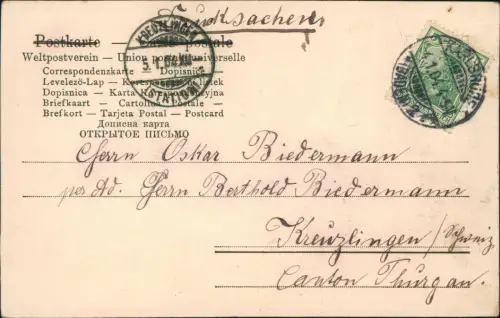 Drucksachen
Postkarte — Carte postale
Weltpostverein — Union postale universelle
Correspondenzkarte — Dopisnice
Levelező-Lap — Korespondenční lístek
Dopisnica — Karta Korespondencyjna
Briefkaart — Cartolina postale
Brefkort — Tarjeta Postal — Postcard
Дописна карта
ОТКРЫТОЕ ПИСЬМО
KREUZLINGEN
5.I.04
Herrn Oskar Biedermann
per Ad. Herrn Berthold Biedermann
Kreuzlingen / Schweiz
Canton Thurgau.